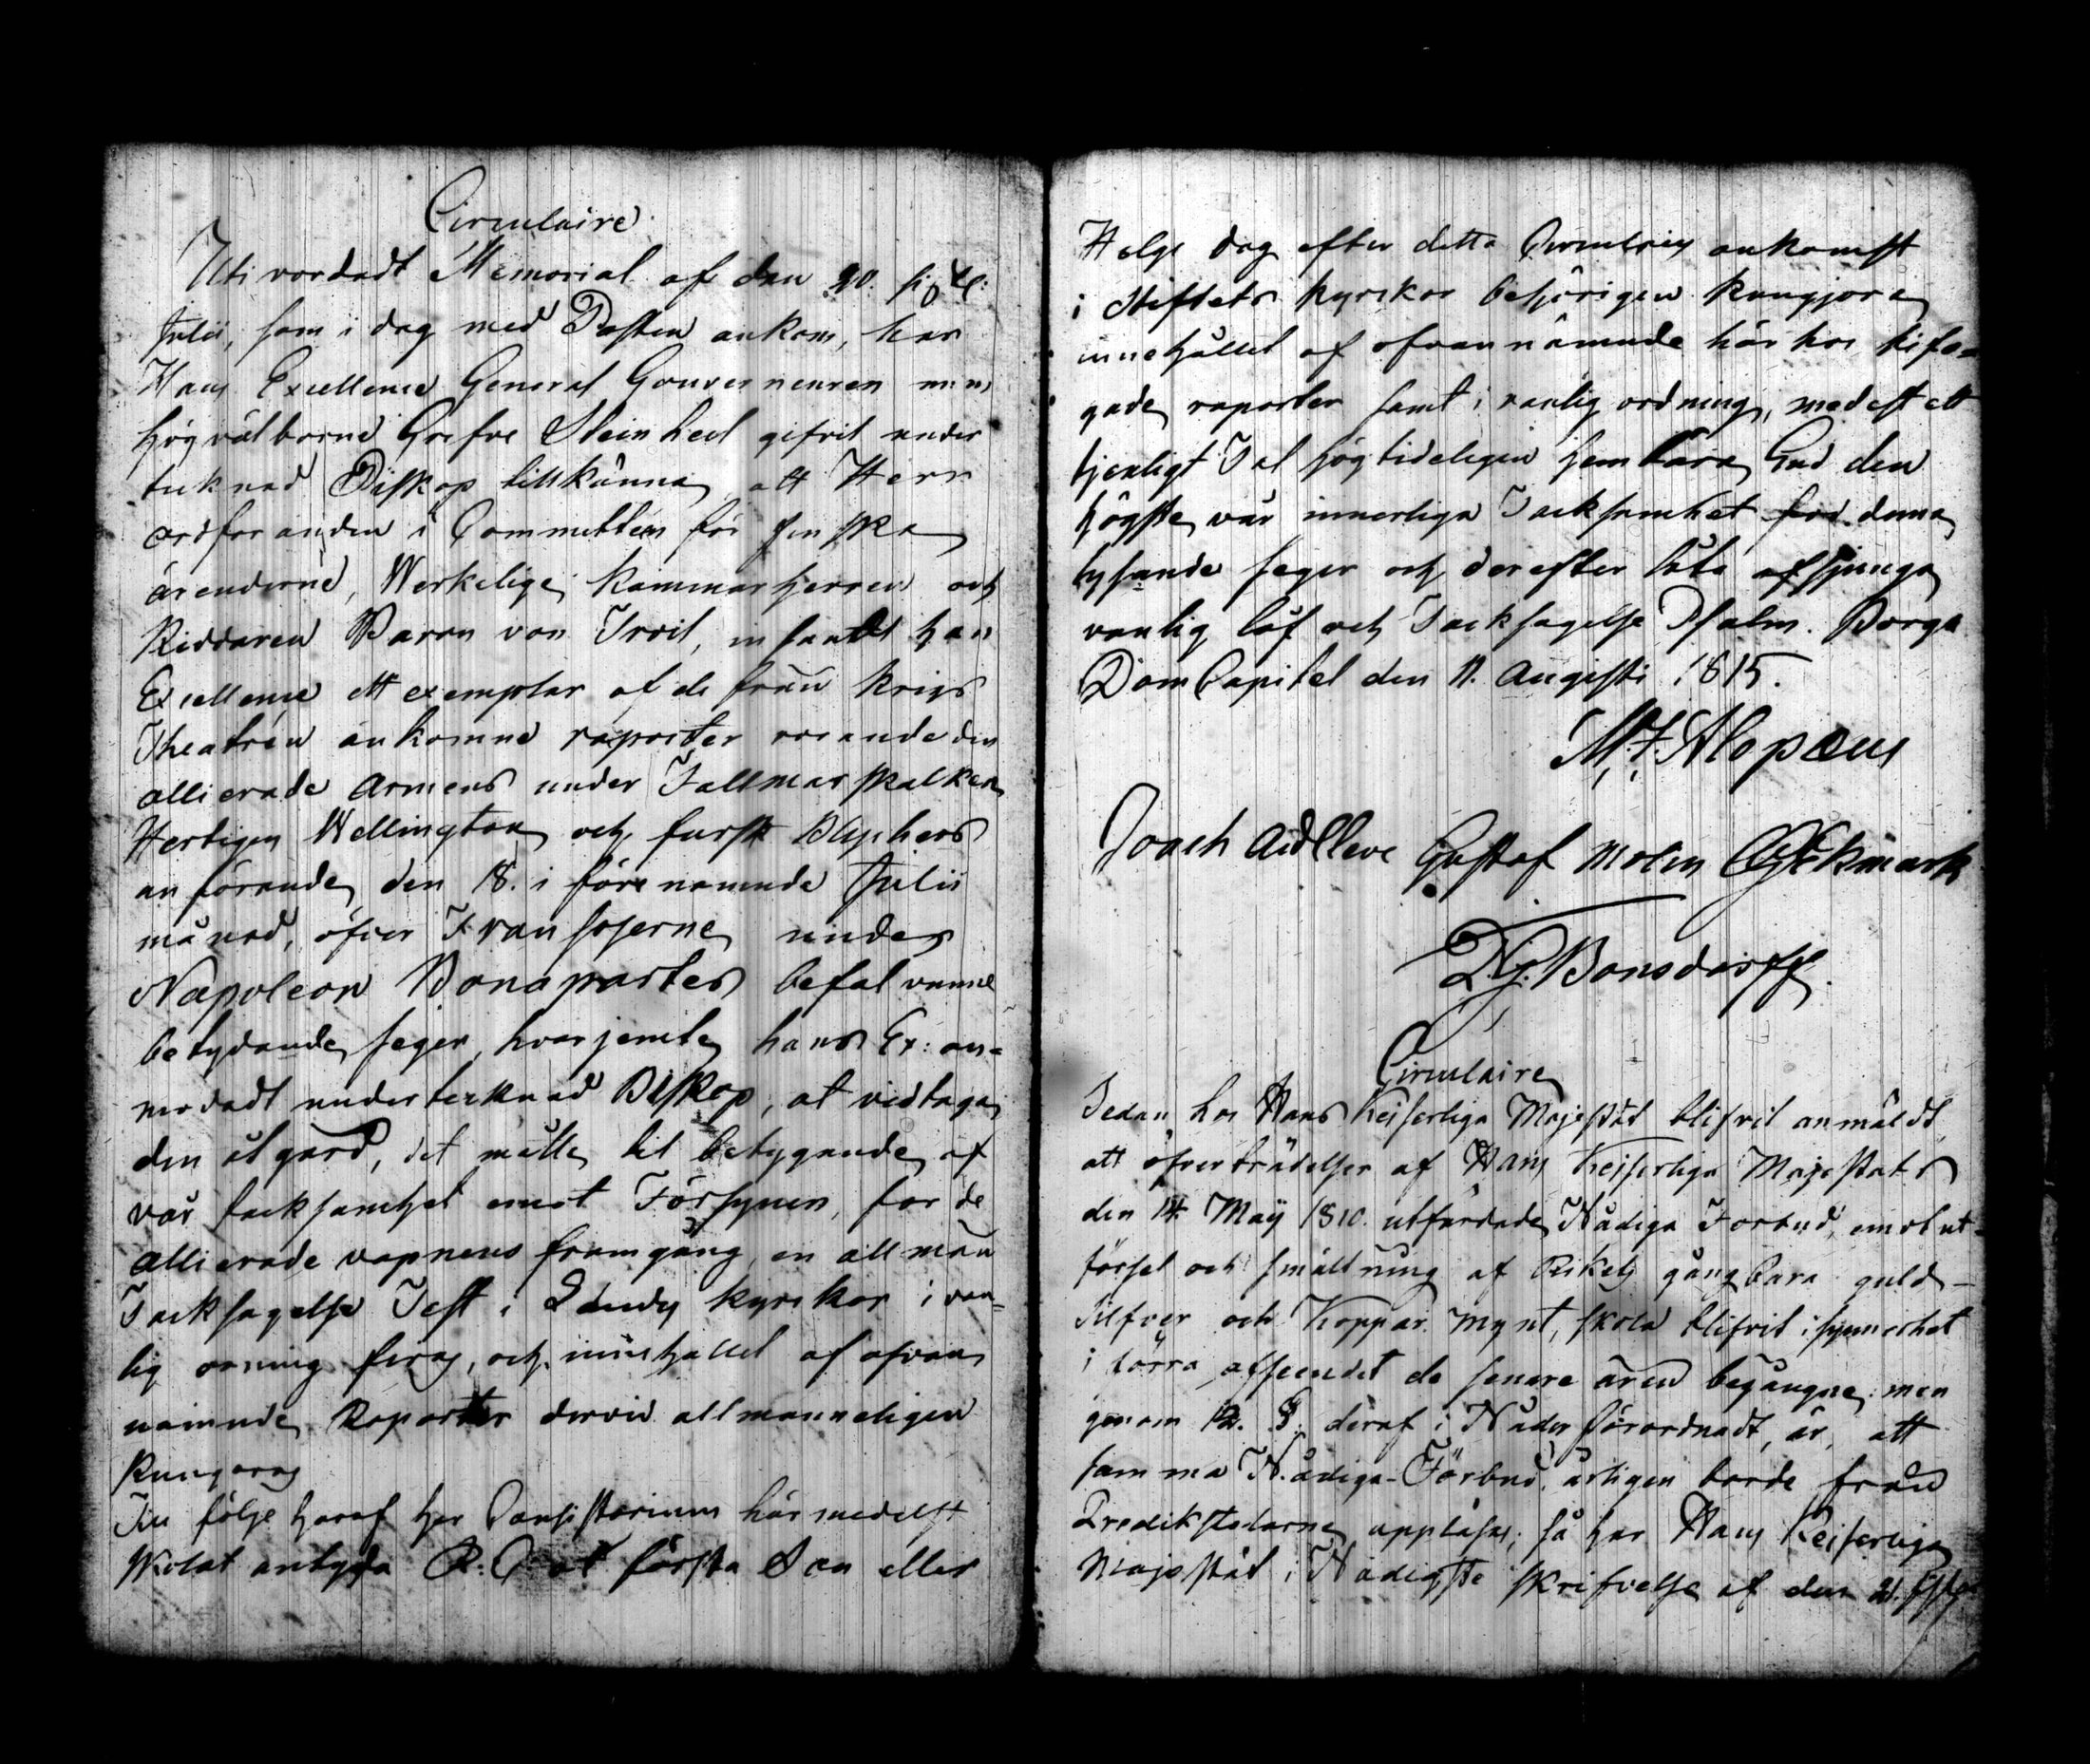 Circulaire
Uti vordadt Memorial af den 20. sistl:
Julii, som i dag med Posten ankom, har
Hans Excellence General Gouverneuren m. m.
högvälborne Grefve Steinheil gifvit under
teknad Biskop tillkänna, att Herr
ordföranden i Committen för finska
ärenderne, Werkelige kammarherren och
Riddaren Baron von Troil, insandt hans
Excellence ett exemplar af de från krigs
Theatren ankomne raporter rörande den
allierade armens under Faltmarskalken
Hertigen Wellington och furst Blychers
anförande, den 18. i förenamnde Julii
månad, öfver Fransoserne under
Napoleon Bonapartes befal vunne
betydande seger, hvarjemte hans Ex: an-
modadt underteknad Biskop, at vidtaga
den åtgärd, det måtte til betygande af
vår tacksamhet emot Försynen, for de
allierade vapnens framgång, en allmän
Tacksagelse Fest i Landets kyrckor i van-
lig ordning firas, och innehållet af ofvan
nämnde Raporter dervid allmänneligen
kungöras
Til följe haraf har Consistorium härmedelst
skolat antyda R: C: at första Sön eller
Helge dag efter detta Circulairs ankomst
i Stiftets kyrckor behörigen kungjöra
innehållet af ofvannämnde här hos bifo-
gade raporter samt i vanlig ordning, medelst ett
tjenligt Tal högtideligen hembära Gud den
högste vår innerliga Tacksamhet för denna
lysande seger och derefter låta afsjunga
vanlig låf och Tacksagelse Psalm. Borgå
DomCapitel den 11. Augusti 1815.
M: J: Alopæus
Joach Ad Cleve Gustaf Molin Ekmark
Bonsdorff.
Circulaire
Sedan hos Hans Keiserliga Majestät blifvit anmäldt
att öfverträdelser af Hans Keiserliga Majestäts
den 14. Maÿ 1810. utfärdade Nådiga Forbud, emot ut-
försel och smältning af Rikets gångbara guld-
Silfver och Koppar Mynt, skola blifvit i synnerhet
i större afseendet de senare åren begångne; men
genom 12. §. deraf i Nåder förordnadt, är, att
samma Nådiga Förbud, årligen borde från
Predikstolarne uppläsas; så har Hans Keiserliga
Majestät i Nådigste skrifvelse af den 21.